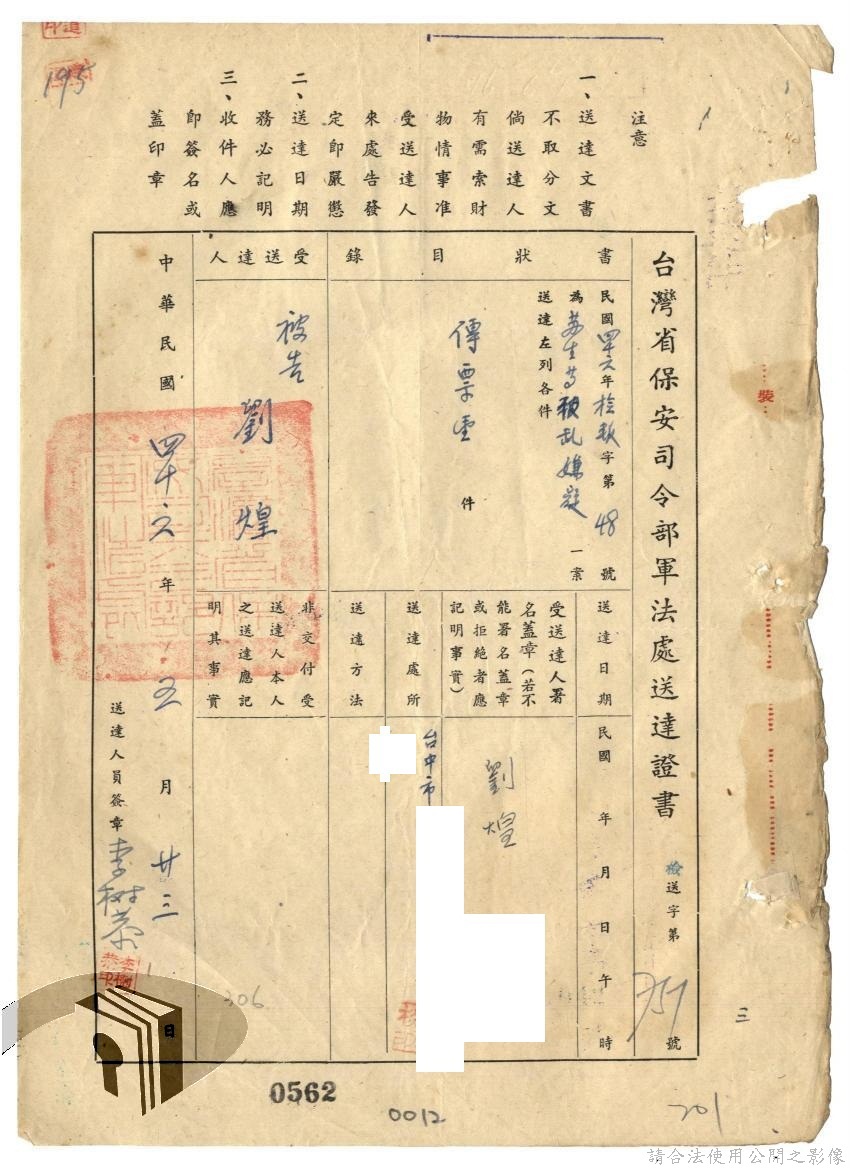 195
注意
一、送達文書
不取分文
倘送達人
有需索財
物情事准
受送達人
來處告發
定即嚴懲
二、送達日期
務必記明
三、收件人應
即簽名或
蓋印章
裝
台灣省保安司令部軍法處送達證書
檢送字第
號
書狀目錄
民國四十六年檢
字第48號
為
叛乱嫌疑一案
送達左列各件
傳票壹件
受送達人
被告劉煌
送達日期
民國 年 月 日 午 時
受送達人署
名蓋章(若不
能署名蓋章
或拒絕者應
記明事實)
劉煌
送達處所
台中市
送達方法
非交付受
送達人本人
之送達應記
明其事實
中華民國四十六年五月廿三日
送達人員簽章
李樹恭
306
三
0562
0012
201
請合法使用公開之影像